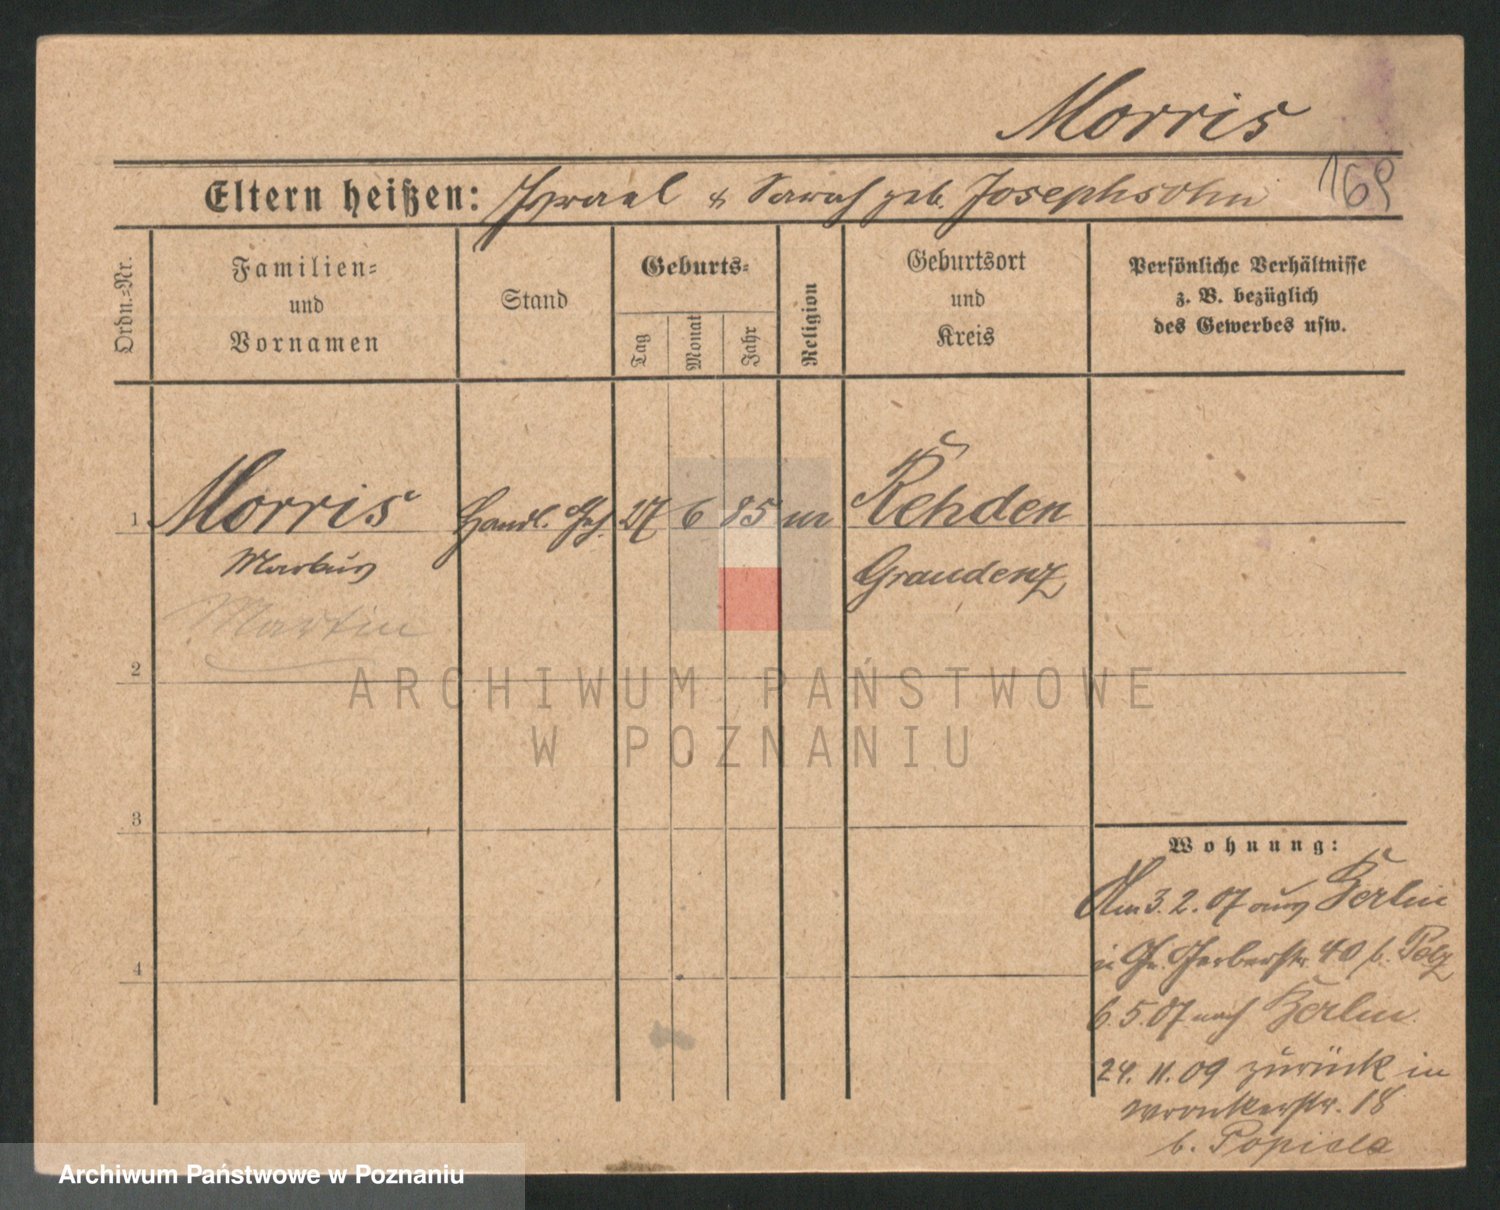 Morris
168
Eltern heißen: Israel & Sarah geb. Josephsohn
Ordn.=Nr.
Familien=
und
Vornamen
Stand
Geburts=
Tag
Monat
Jahr
Religion
Geburtsort
und
Kreis
Persönliche Verhältnisse
z. B. bezüglich
des Gewerbes usw.
1 Morris Handl. Geh. 27 6 85 m Rehden
Markus Graudenz
Martin
2
ARCHIWUM PAŃSTWOWE
W POZNANIU
3
Wohnung:
Am 3.2.07 aus Berlin
in Gr. Gerberstr. 40 b. Pelz
4
6.5.07 nach Berlin.
24.11.09 zurück in
Wronkerstr. 18
b. Popiela
Archiwum Państwowe w Poznaniu